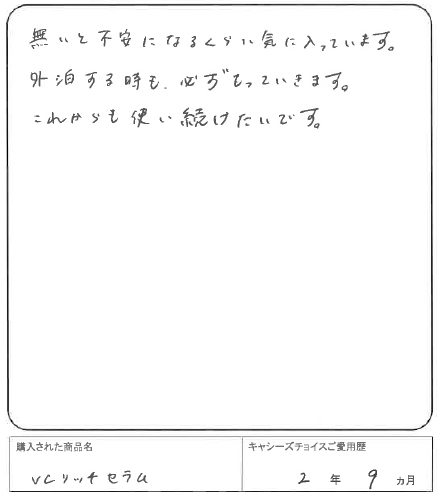 無いと不安になるくらい気に入っています。
外泊する時も、必ずもっていきます。
これからも使い続けたいです。
購入された商品名
キャシーズチョイスご愛用歴
VCリッチセラム
2 年 9 ヵ月